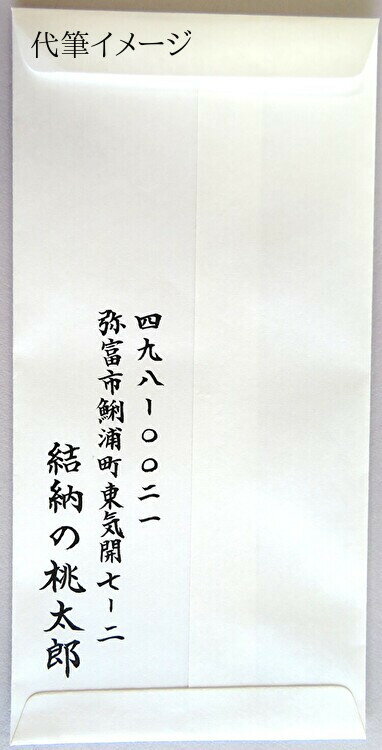 代筆イメージ
四九八ー〇〇二一
弥富市鯏浦町東気開七ー二
結納の桃太郎